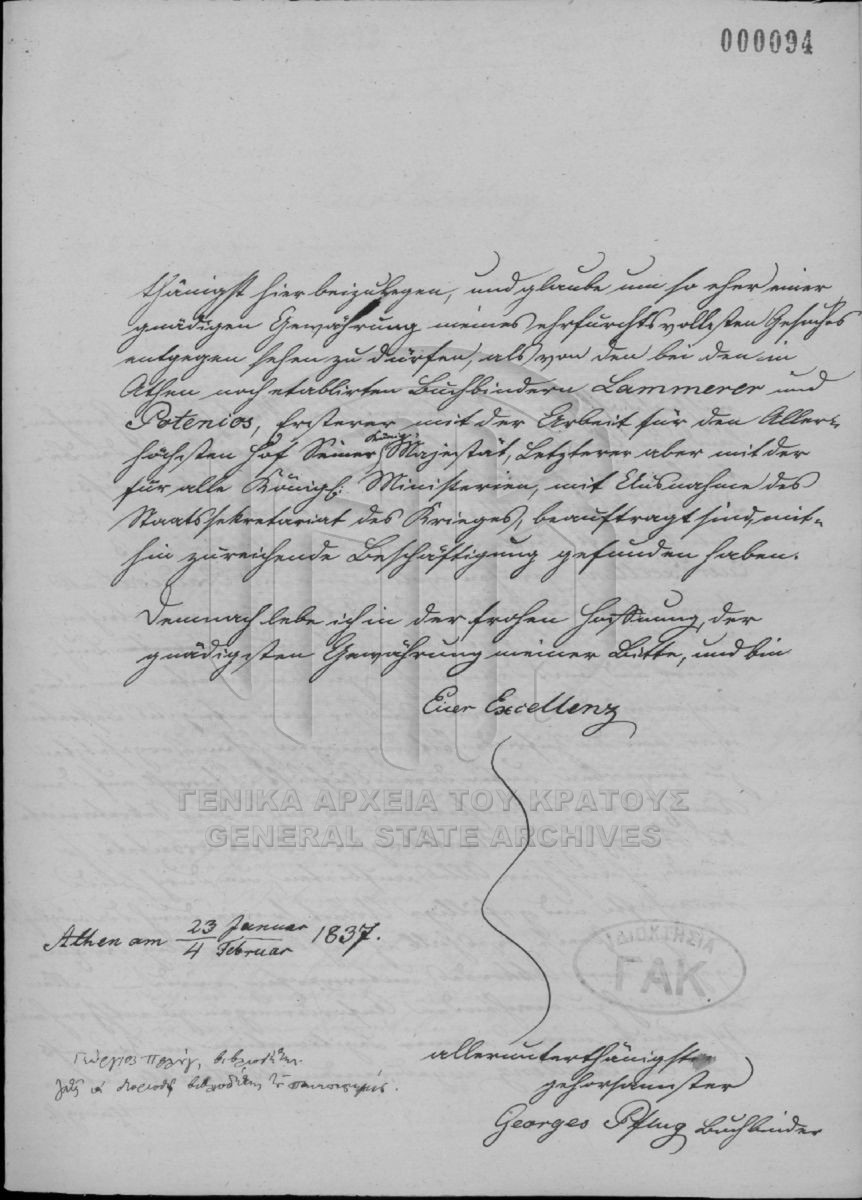 000094
thänigst hier beizulegen, und glaube um so eher einer
gnädigen Gewährung meines ehrfurchtsvollesten Gesuches
entgegen sehen zu dürfen, als von den bei den in
Athen noch etablirten Buchbindern Lammerer und
Potenios, Ersterer mit der Arbeit für den Aller-
höchsten Hof Seiner König: Majestät, Letzterer aber mit der
für alle Königl: Ministerien, mit Ausnahme des
Staatssekretariat des Krieges, beauftragt sind, mit-
hin zureichende Beschäftigung gefunden haben.
Demnach lebe ich in der frohen Hoffnung, der
gnädigsten Gewährung meiner Bitte, und bin
Euer Excellenz
ΓΕΝΙΚΑ ΑΡΧΕΙΑ ΤΟΥ ΚΡΑΤΟΥΣ
GENERAL STATE ARCHIVES
Athen am 23 Januar / 4 Februar 1837.
ΓΑΚ
allerunterthänigst
gehorsamster
Georges Pflug Buchbinder
Γεώργιος Πφλύγ, βιβλιοδέτης.
ζητεῖ νὰ διορισθῇ βιβλιοδέτης τοῦ